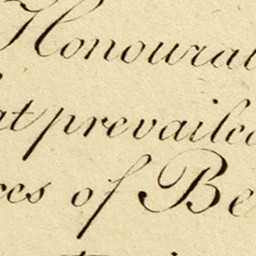 Honoural
at prevailed
ces of Be